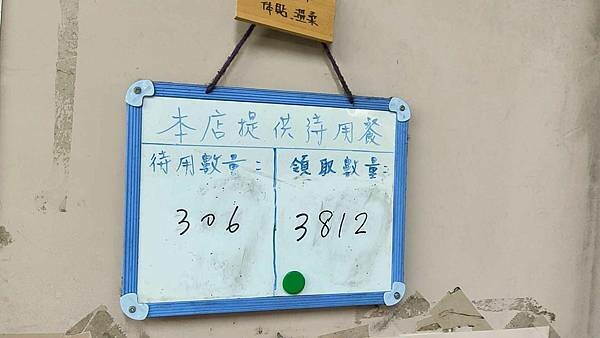 体貼_溫柔
本店提供待用餐
待用數量:
306
領取數量:
3812